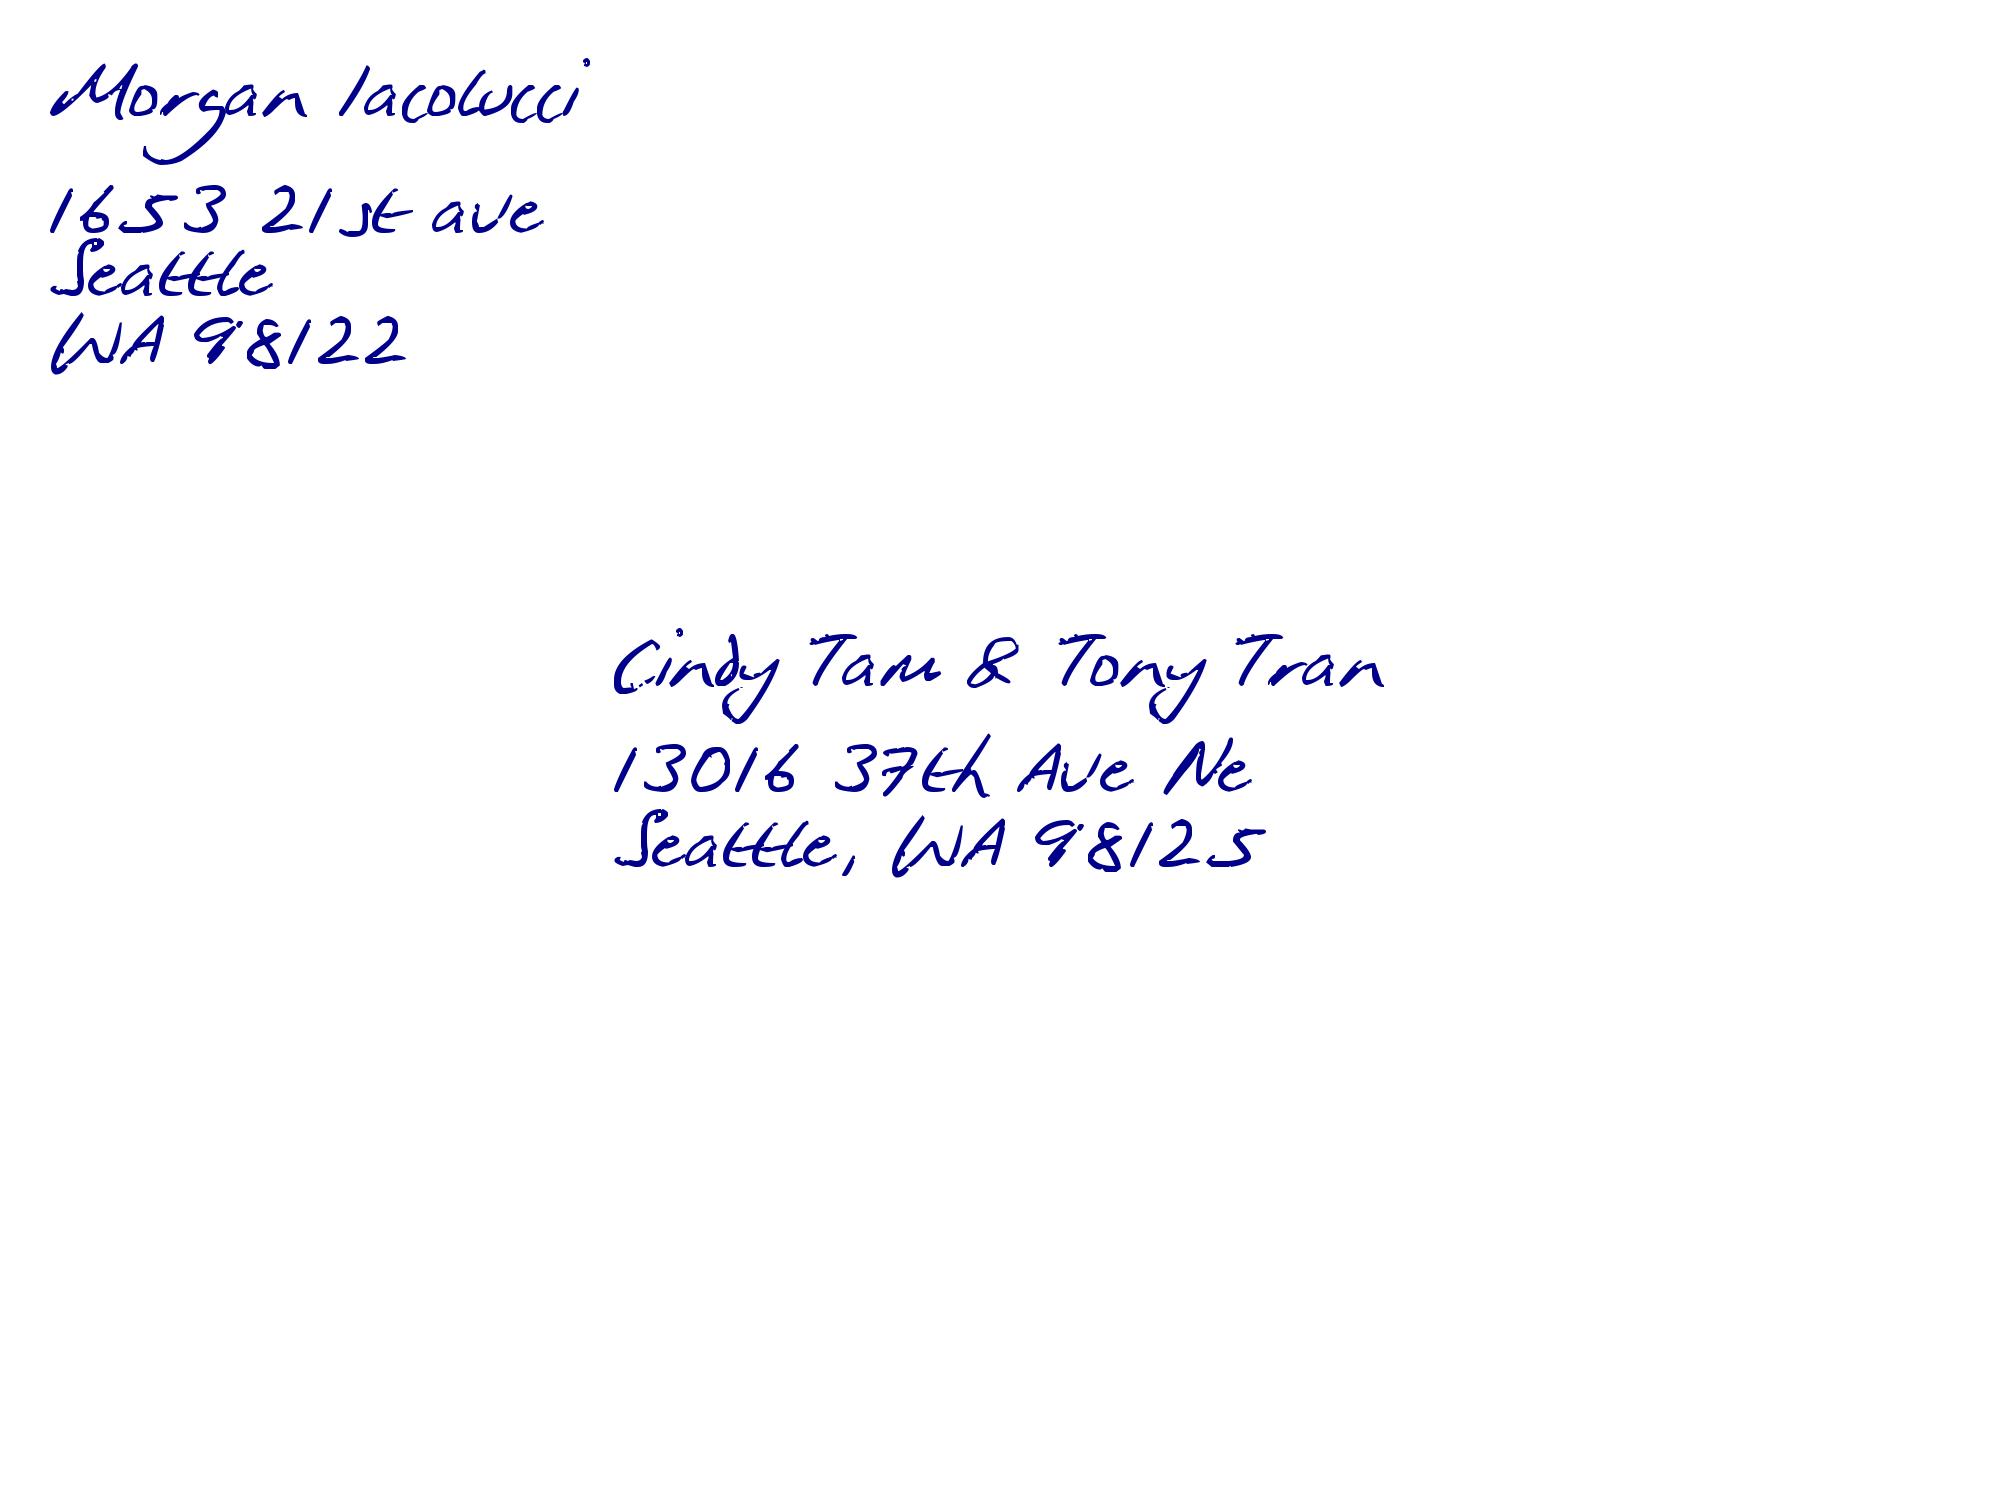 Morgan Iacolucci
1653 21st ave
Seattle
WA 98122
Cindy Tam & Tony Tran
13016 37th Ave Ne
Seattle, WA 98125